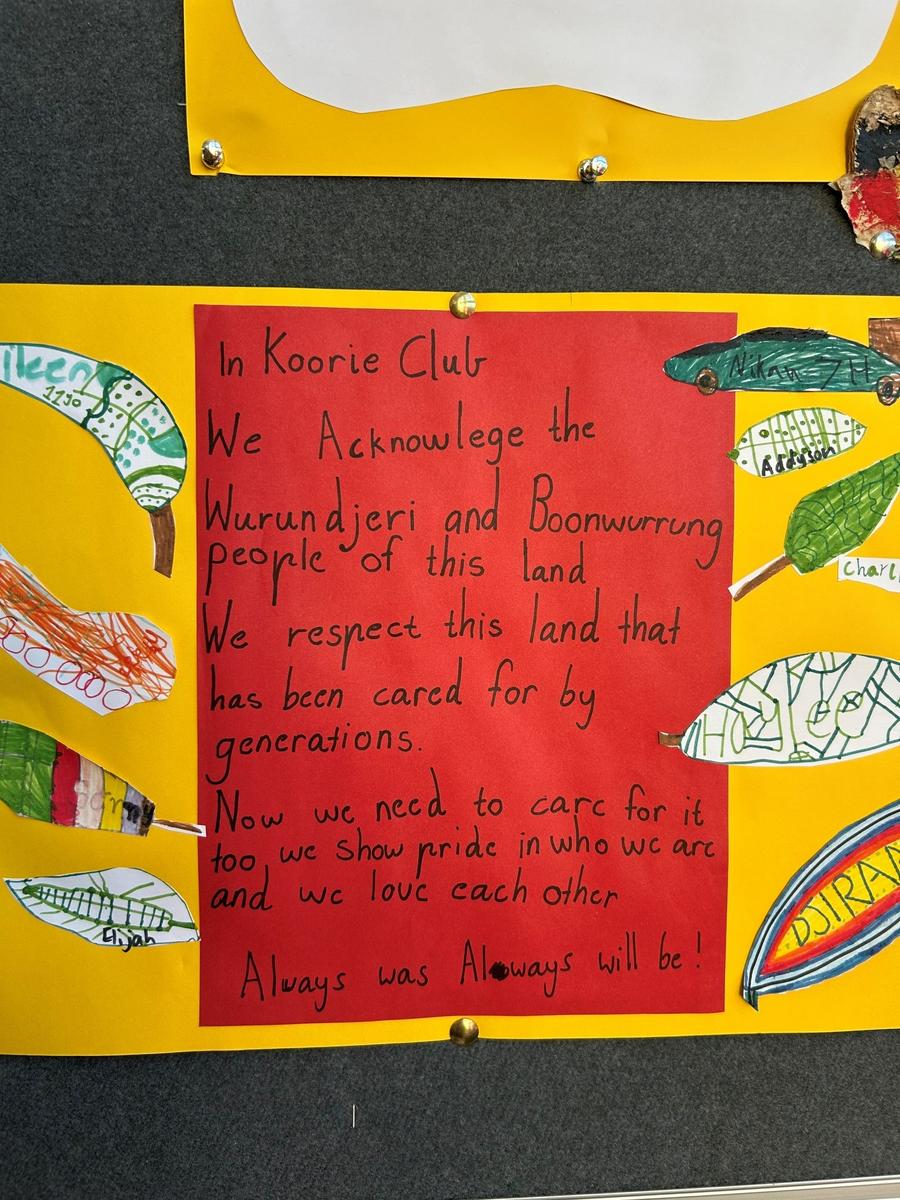 In Koorie Club
We Acknowlege the
Wurundjeri and Boonwurrung
people of this land
We respect this land that
has been cared for by
generations.
Now we need to care for it
too we show pride in who we are
and we love each other
Always was Always will be!
ileen
Elijah
Addyson
DJIRAN